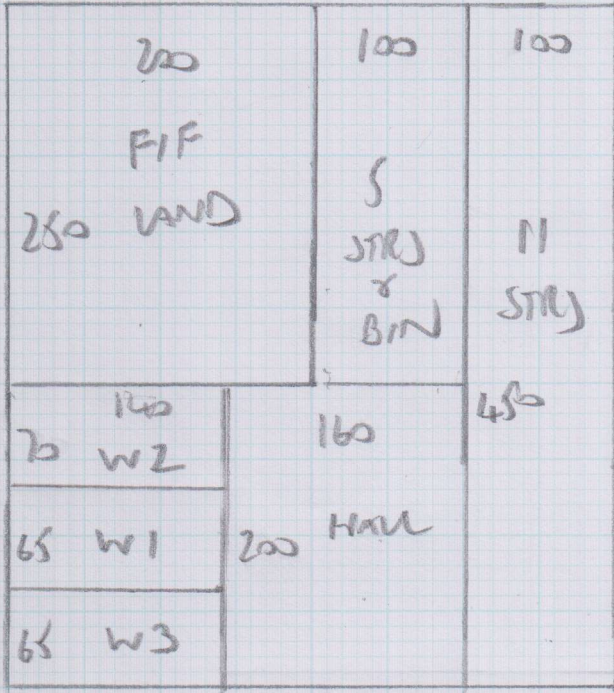 200
F/F
LAND
250
100
S
STRS
&
BIN
100
11
STRS
450
140
70 W2
65 W1
65 W3
160
200 HALL